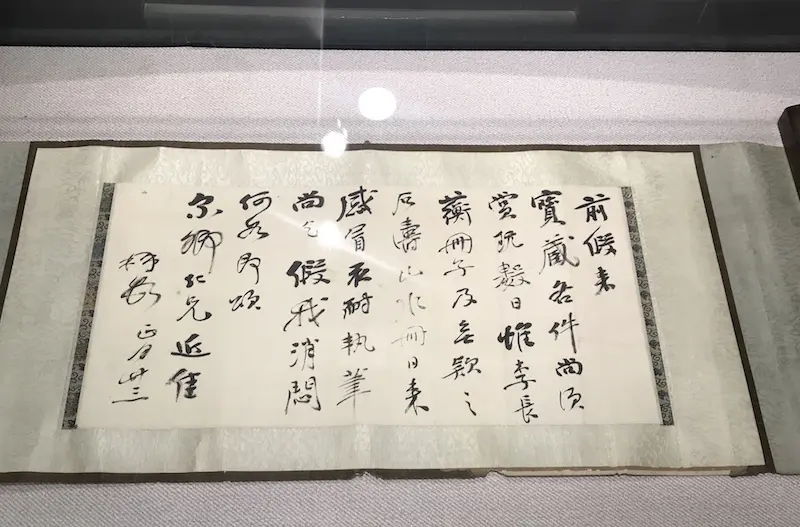 前假来
寶藏各件尚須
賞玩數日惟李長
蘅冊子及無款之
石濤山水冊日来
感冒不耐執筆
尚乞假我消悶
何如 頌
仁兄近佳
正月廿三